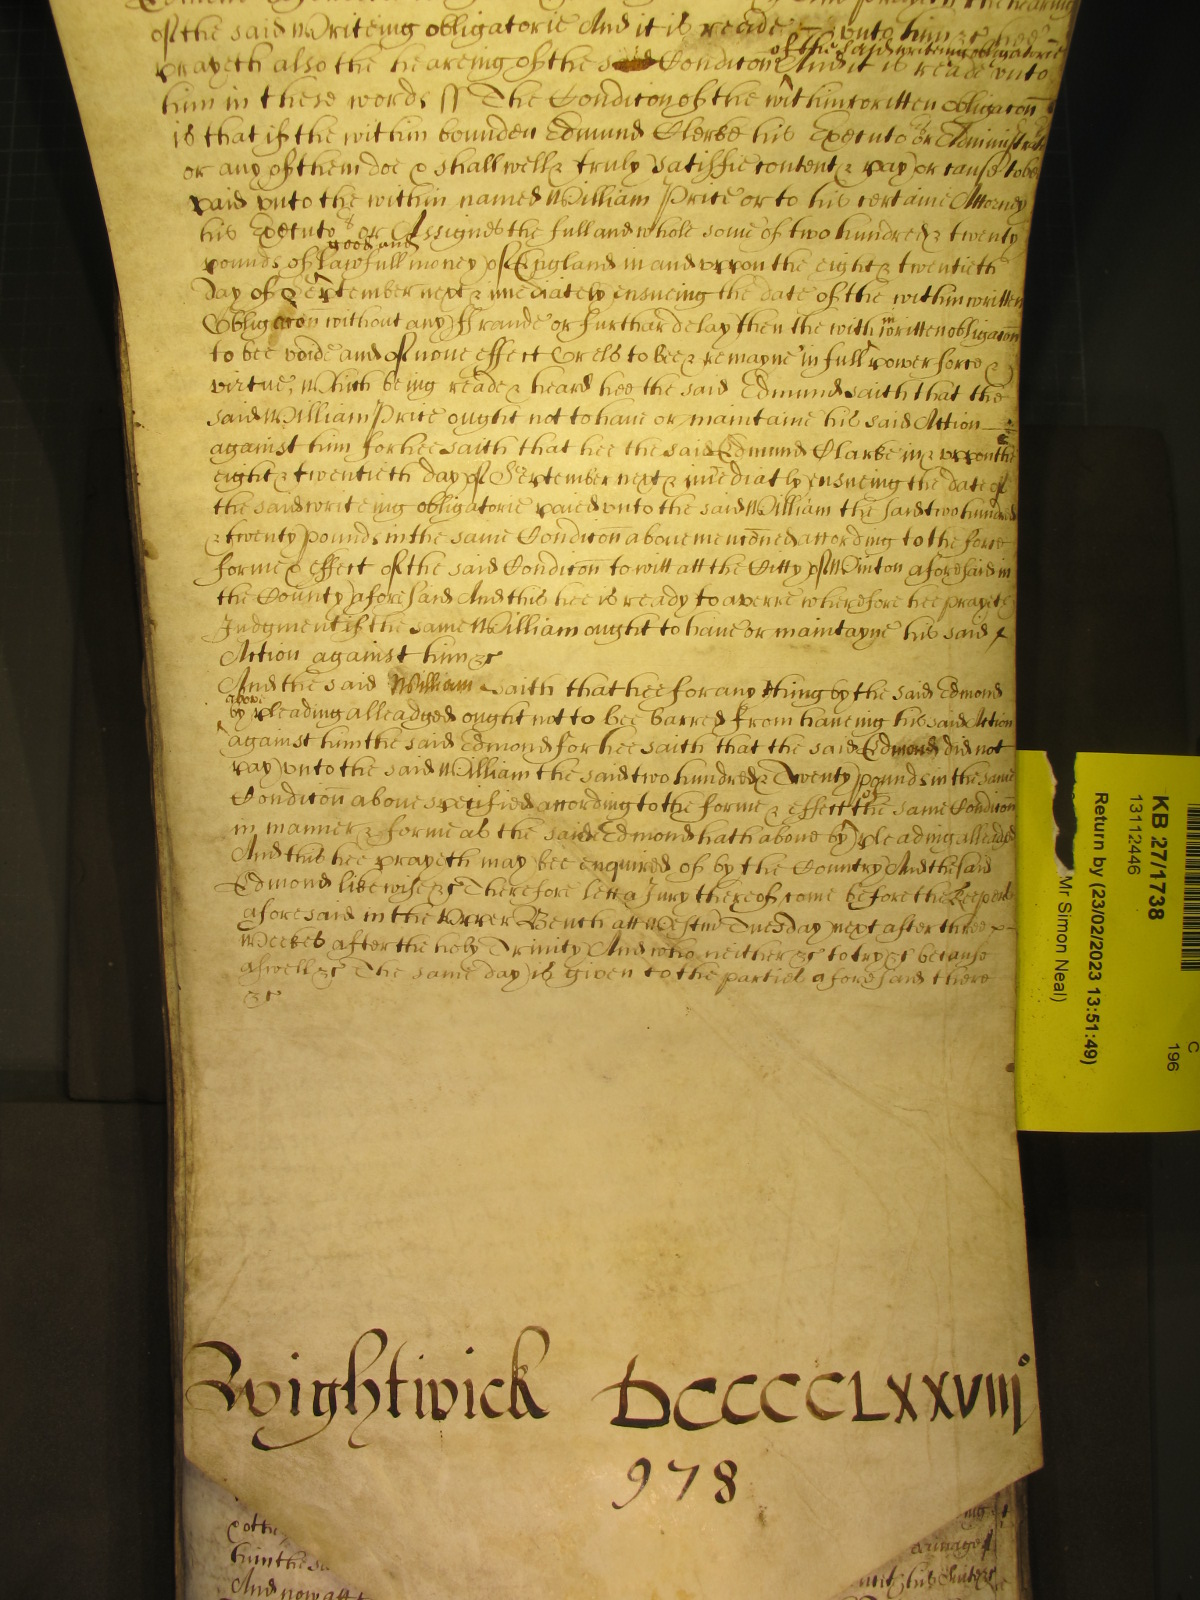 of the said Writeing obligatorie And it is reade unto him &c hee
prayeth also the heareing of the said Condicon of the said writeing obligatorie And it is reade unto
him in these words ss The Condicon of the within written obligacon
is that if the within bounden Edmund Clerke his Executors or Administrators
or any of them doe & shall well & truly satisfie content & pay or cause to bee
paid unto the within named William Price or to his certaine Attorney
his Executors or Assignes the full and whole some of two hundred & twenty
pounds of good and lawfull money of England in and uppon the eight & twentieth
day of September next & imediately ensueing the date of the within written
Obligacon without any fraude or further delay then the within written obligacon
to bee voide and of none effect Or els to bee & remayne in full power force &
virtue, Which being reade & heard hee the said Edmund saith that the
said William Price ought not to have or maintaine his said Action
against him for hee saith that hee the said Edmund Clarke in & uppon the
eight & twentieth day of September next & imediatly ensueing the date of
the said writeing obligatorie paied unto the said William the said two hundred
& twenty pounds in the same Condicon above mencioned according to the force
forme & effect of the said Condicon to witt att the Citty of Winton aforesaid in
the County aforesaid And this hee is ready to averre wherefore hee prayeth
Judgment if the same William ought to have or maintayne his said
Action against him &c
And the said William saith that hee for any thing by the said Edmond
above by pleading alleadged ought not to bee barred from haveing his said Action
against him the said Edmond for hee saith that the said Edmond did not
pay unto the said William the said two hundred & Twenty pounds in the same
Condicon above specified according to the forme & effect of the same Condicon
in manner & forme as the said Edmond hath above by pleading alleadged
And this hee prayeth may bee enquired of by the Country And the said
Edmond likewise &c Therefore lett a Jury thereof come before the Keepers
aforesaid in the Upper Bench att Westmr Tuesday next after three
Weekes after the holy Trinity And who neither &c to try &c because
aswell &c The same day is given to the parties aforesaid there
&c
Brightwick DCCCCLXXVIIJ
978
him the
And now att
KB 27/1738
13112446
Return by (23/02/2023 13:51:49)
Mr Simon Neal)
C
196